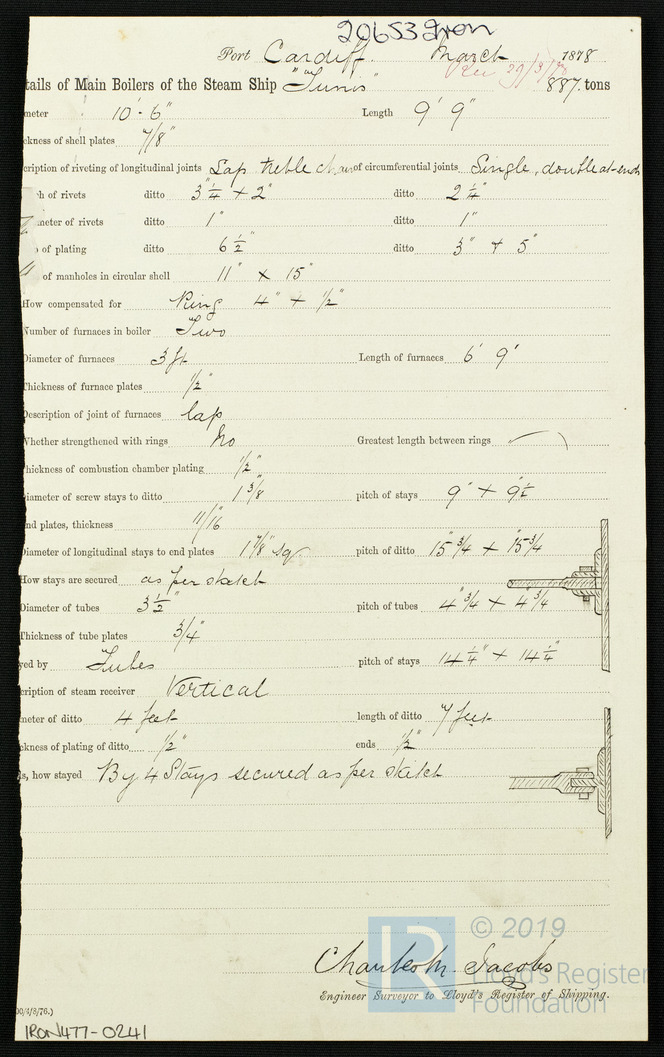 20653 Iron
Port Cardiff. March 1878
Rec 29/3/78
tails of Main Boilers of the Steam Ship "Tunis" 887. tons
meter 10' - 6" Length 9' 9"
ckness of shell plates 7/8"
cription of riveting of longitudinal joints Lap treble chain of circumferential joints Single, double at ends
h of rivets ditto 3 1/4" + 2" ditto 2 1/4"
meter of rivets ditto 1" ditto 1"
of plating ditto 6 1/2" ditto 3" + 5"
of manholes in circular shell 11" x 15"
How compensated for Ring 4" + 1/2"
Number of furnaces in boiler Two
Diameter of furnaces 3 ft Length of furnaces 6' 9"
Thickness of furnace plates 1/2"
Description of joint of furnaces lap
Whether strengthened with rings No Greatest length between rings
hickness of combustion chamber plating 1/2"
iameter of screw stays to ditto 1 3/8" pitch of stays 9" + 9 1/2
nd plates, thickness 11/16"
iameter of longitudinal stays to end plates 1 7/8" sq pitch of ditto 15" 3/4 + 15" 3/4
How stays are secured as per sketch
Diameter of tubes 3 1/2" pitch of tubes 4" 3/4 + 4" 3/4
Thickness of tube plates 3/4"
yed by Tubes pitch of stays 14 1/4" + 14 1/4"
cription of steam receiver Vertical
meter of ditto 4 feet length of ditto 7 feet
ckness of plating of ditto 1/2" ends 1/2"
s, how stayed By 4 Stays secured as per sketch
© 2019
Lloyd's Register
Foundation
Charles M. Jacobs
Engineer Surveyor to Lloyd's Register of Shipping.
00/4/3/76.)
IRON477-0241